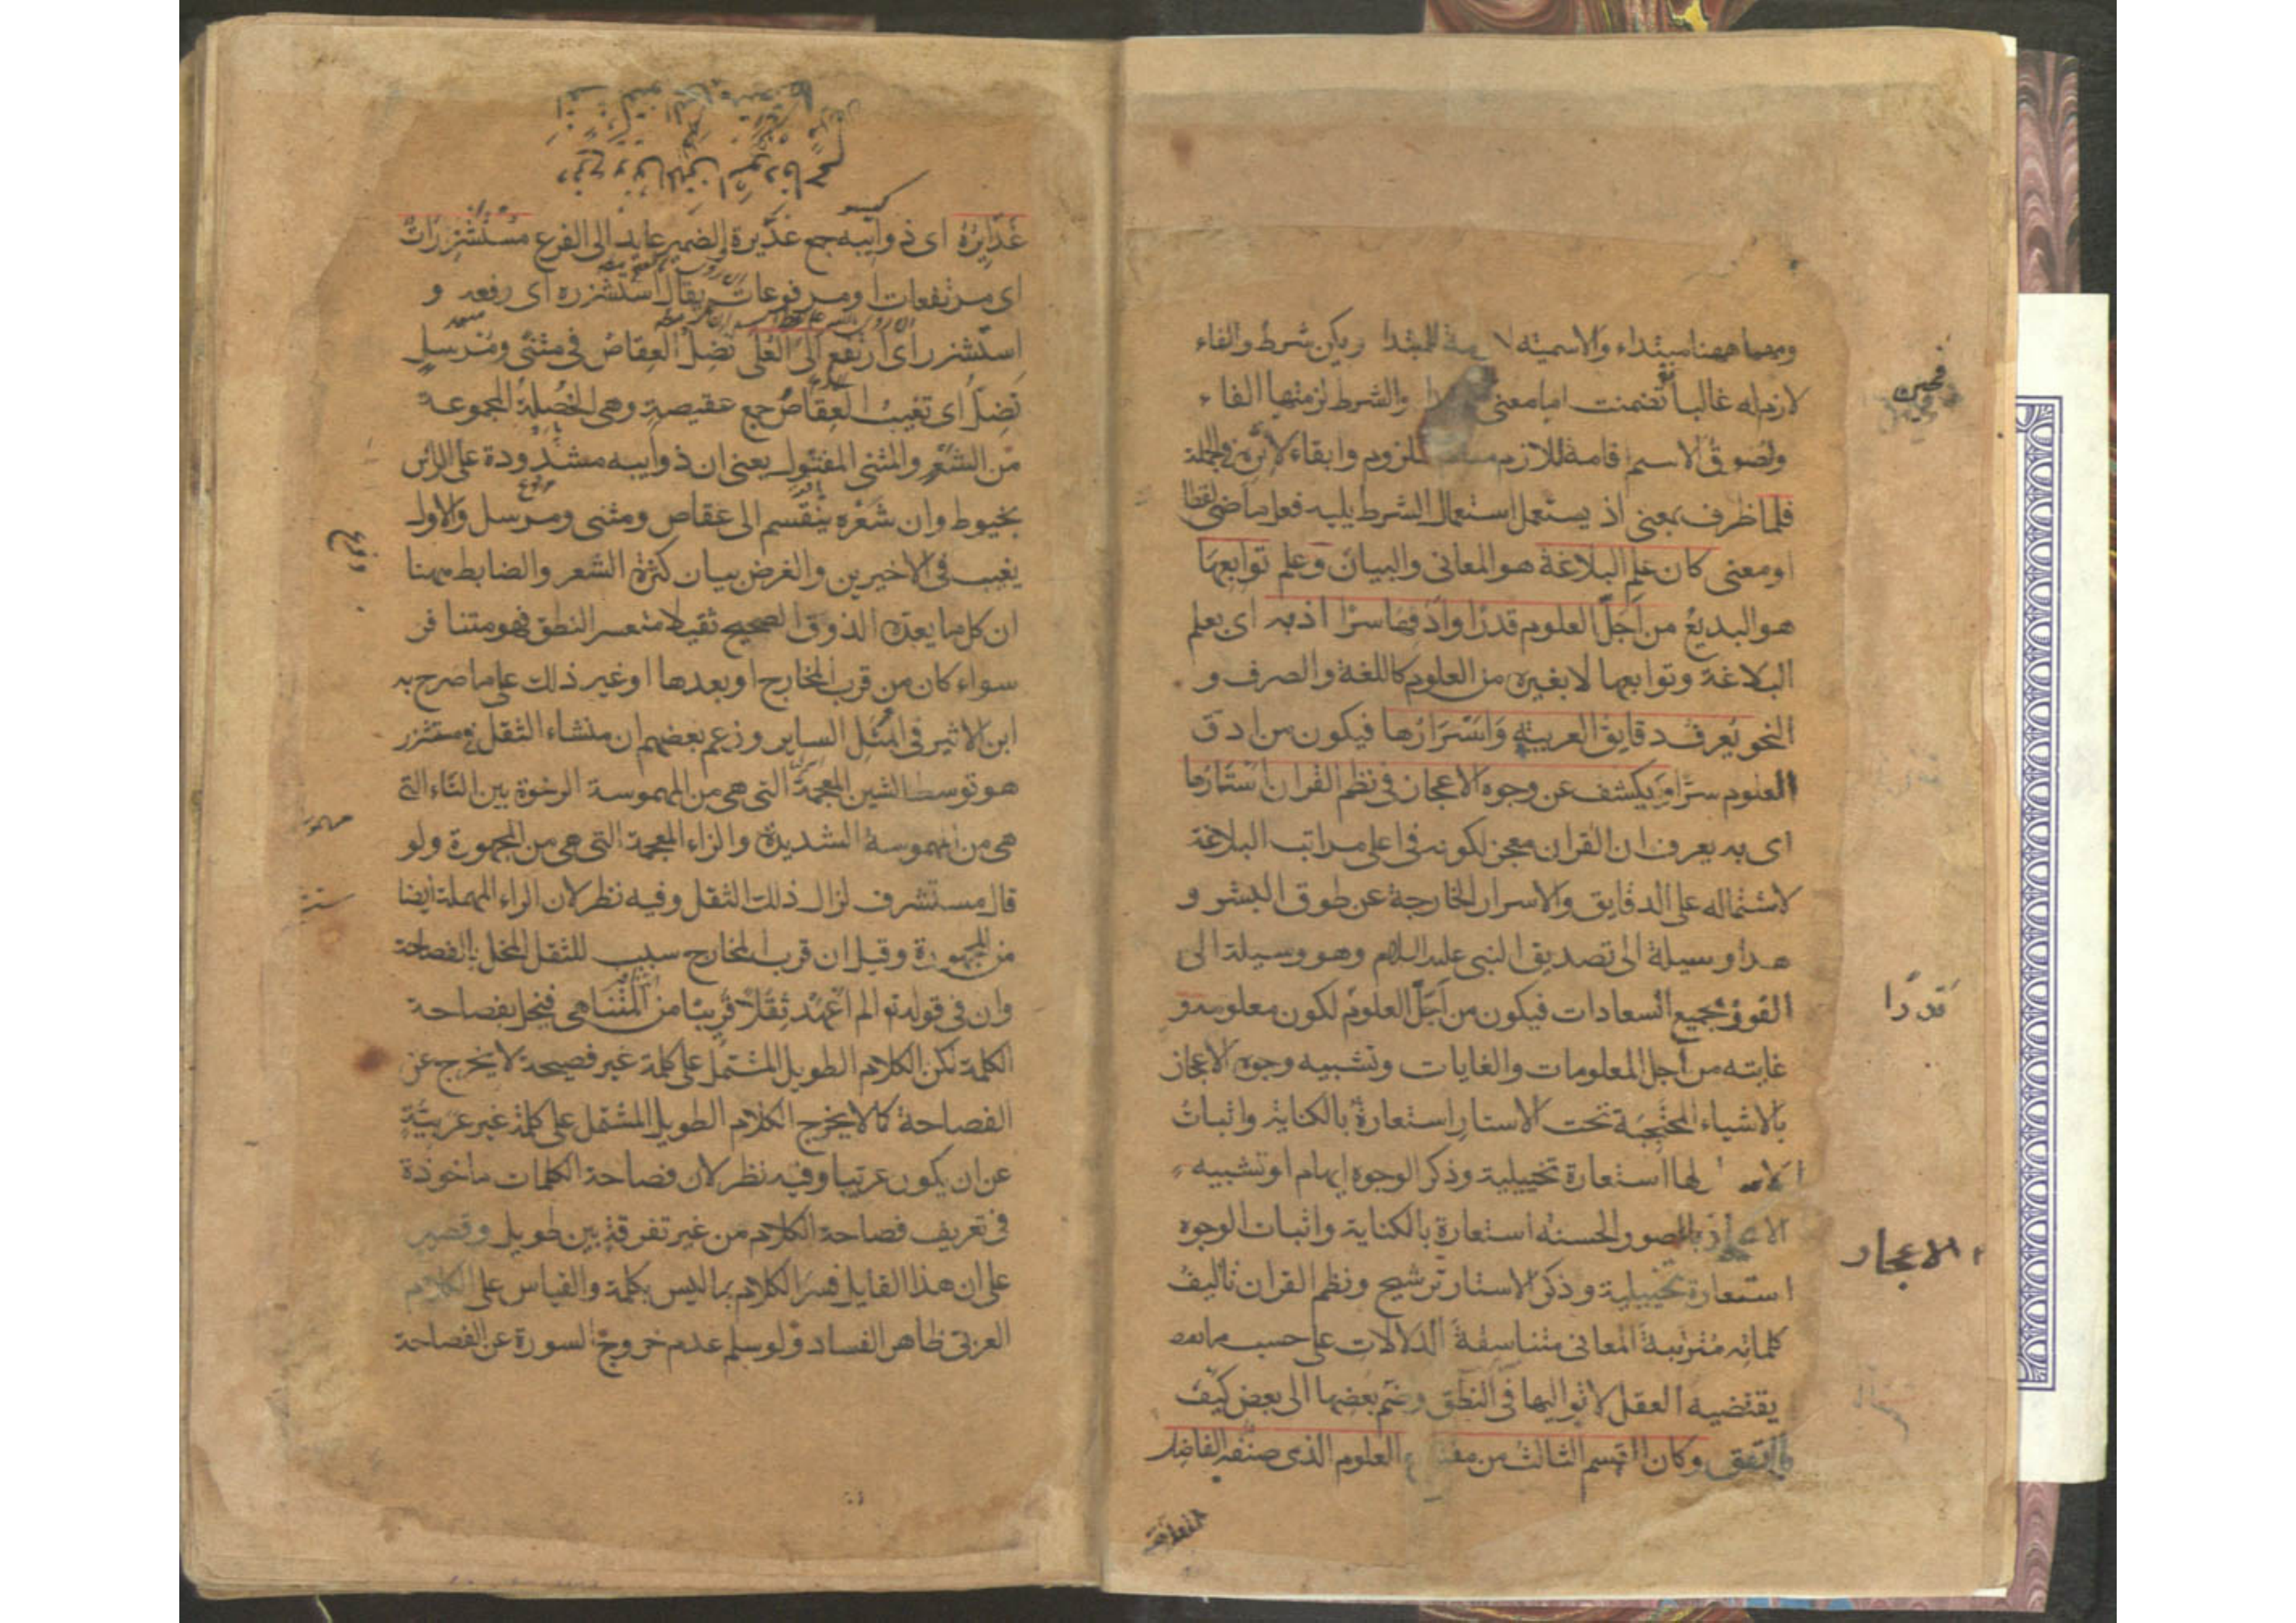 ومهما ههنا مبتداء والاسمية لازمة للمبتدا ويكن شرط والفاء
لازم له غالبا تضمنت اما معنى والشرط لزمتها الفاء
ولصوق الاسم اقامة للازم مقام الملزوم وابقاء لاثره في الجملة
فلما ظرف بمعنى اذ يستعمل استعمال الشرط يليه فعل ماضى لفظا
او معنى كان علم البلاغة هو المعانى والبيان وعلم توابعها
هو البديع من اجل العلوم قدرا وادقها سرا اذ به اى بعلم
البلاغة وتوابعها لا بغيره من العلوم كاللغة والصرف و
النحو يعرف دقايق العربية واسرارها فيكون من ادق
العلوم سرا ويكشف عن وجوه الاعجاز فى نظم القران استارها
اى به يعرف ان القران معجز لكونه فى اعلى مراتب البلاغة
لاشتماله على الدقايق والاسرار الخارجة عن طوق البشر و
هذا وسيلة الى تصديق النبى عليه السلام وهو وسيلة الى
الفوز بجميع السعادات فيكون من اجل العلوم لكون معلومه و
غايته من اجل المعلومات والغايات وتشبيه وجوه الاعجاز
بالاشياء المحتجبة تحت الاستار استعارة بالكناية واثبات
لها استعارة تخييلية وذكر الوجوه ايهام او تشبيه
الاعجاز بالصور الحسنة استعارة بالكناية واثبات الوجوه
استعارة تخييلية وذكر الاستار ترشيح ونظم القران تاليف
كلماته مترتبة المعانى متناسقة الدلالات على حسب ما
يقتضيه العقل لا تواليها فى النطق وضم بعضها الى بعض كيف
ما اتفق وكان القسم الثالث من مفتاح العلوم الذى صنفه الفاضل
قدرا
الاعجاز
غدايره اى ذوايبه جمع غديرة والضمير عايد الى الفرع مستشزرات
اى مرتفعات او مرفوعات يقال استشزره اى رفعه و
استشزر اى ارتفع الى العلى تضل العقاص فى مثنى ومرسل
تضل اى تغيب العقاص جمع عقيصة وهى الخصلة المجموعة
من الشعر والمثنى المفتول يعنى ان ذوايبه مشدودة على الراس
بخيوط وان شعره ينقسم الى عقاص ومثنى ومرسل والاول
يغيب فى الاخيرين والغرض بيان كثرة الشعر والضابط ههنا
ان كل ما يعده الذوق الصحيح ثقيلا متعسر النطق فهو متنافر
سواء كان من قرب المخارج او بعدها او غير ذلك على ما صرح به
ابن الاثير فى المثل الساير وزعم بعضهم ان منشاء الثقل فى مستشزر
هو توسط الشين المعجمة التى هى من المهموسة الرخوة بين التاء التى
هى من المهموسة الشديدة والزاء المعجمة التى هى من المجهورة ولو
قال مستشرف لزال ذلك الثقل وفيه نظر لان الراء المهملة ايضا
من المجهورة وقيل ان قرب المخارج سبب للثقل المخل بالفصاحة
وان فى قوله تع الم اعهد ثقلا قريبا من المتناهى فيخل بفصاحة
الكلمة لكن الكلام الطويل المشتمل على كلمة غير فصيحة لا يخرج عن
الفصاحة كما لا يخرج الكلام الطويل المشتمل على كلمة غير عربية
عن ان يكون عربيا وفيه نظر لان فصاحة الكلمات ماخوذة
فى تعريف فصاحة الكلام من غير تفرقة بين طويل وقصير
على ان هذا القايل فسر الكلام بما ليس بكلمة والقياس على الكلام
العربى ظاهر الفساد ولو سلم عدم خروج السورة عن الفصاحة